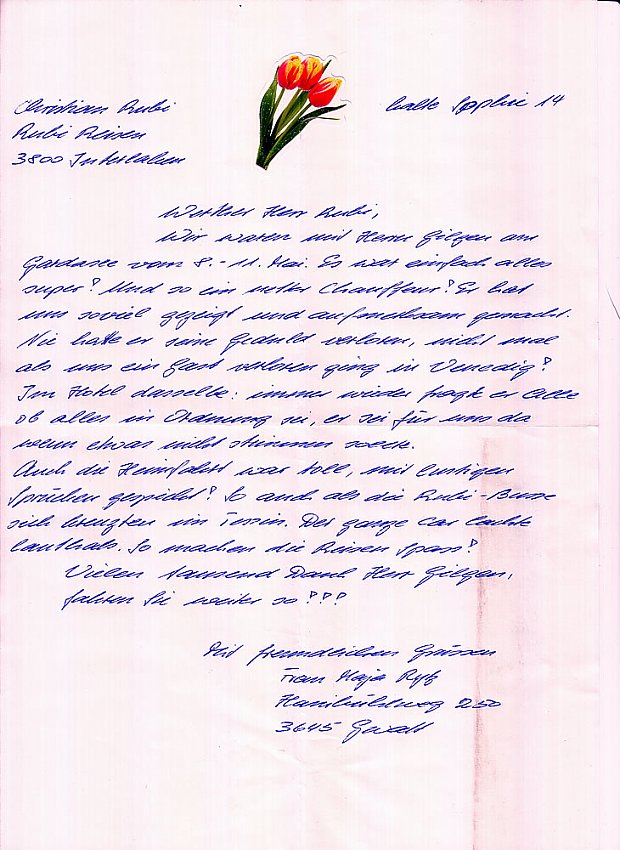 Christian Rubi
kalte Sophie 14
Rubi Reisen
3800 Interlaken
Werther Herr Rubi,
Wir waren mit Herrn Gilgen am
Gardasee vom 8. - 11. Mai. Es war einfach alles
super! Und so ein netter Chauffeur! Er hat
uns soviel gezeigt und aufmerksam gemacht.
Nie hatte er seine Geduld verloren, nicht mal
als uns ein Gast verloren ging in Venedig!
Im Hotel dasselbe: immer wieder fragt er Alle
ob alles in Ordnung sei, er sei für uns da
wenn etwas nicht stimmen sollte.
Auch die Heimfahrt war toll, mit lustigen
Sprüchen gespickt! So auch als die Rubi-Busse
sich kreuzten im Tessin. Der ganze Car lachte
lauthals. So machen die Reisen Spass!
Vielen tausend Dank Herr Gilgen,
fahren Sie weiter so!!!
Mit freundlichen Grüssen
Frau Maja Ryf
250
3645 Gwatt